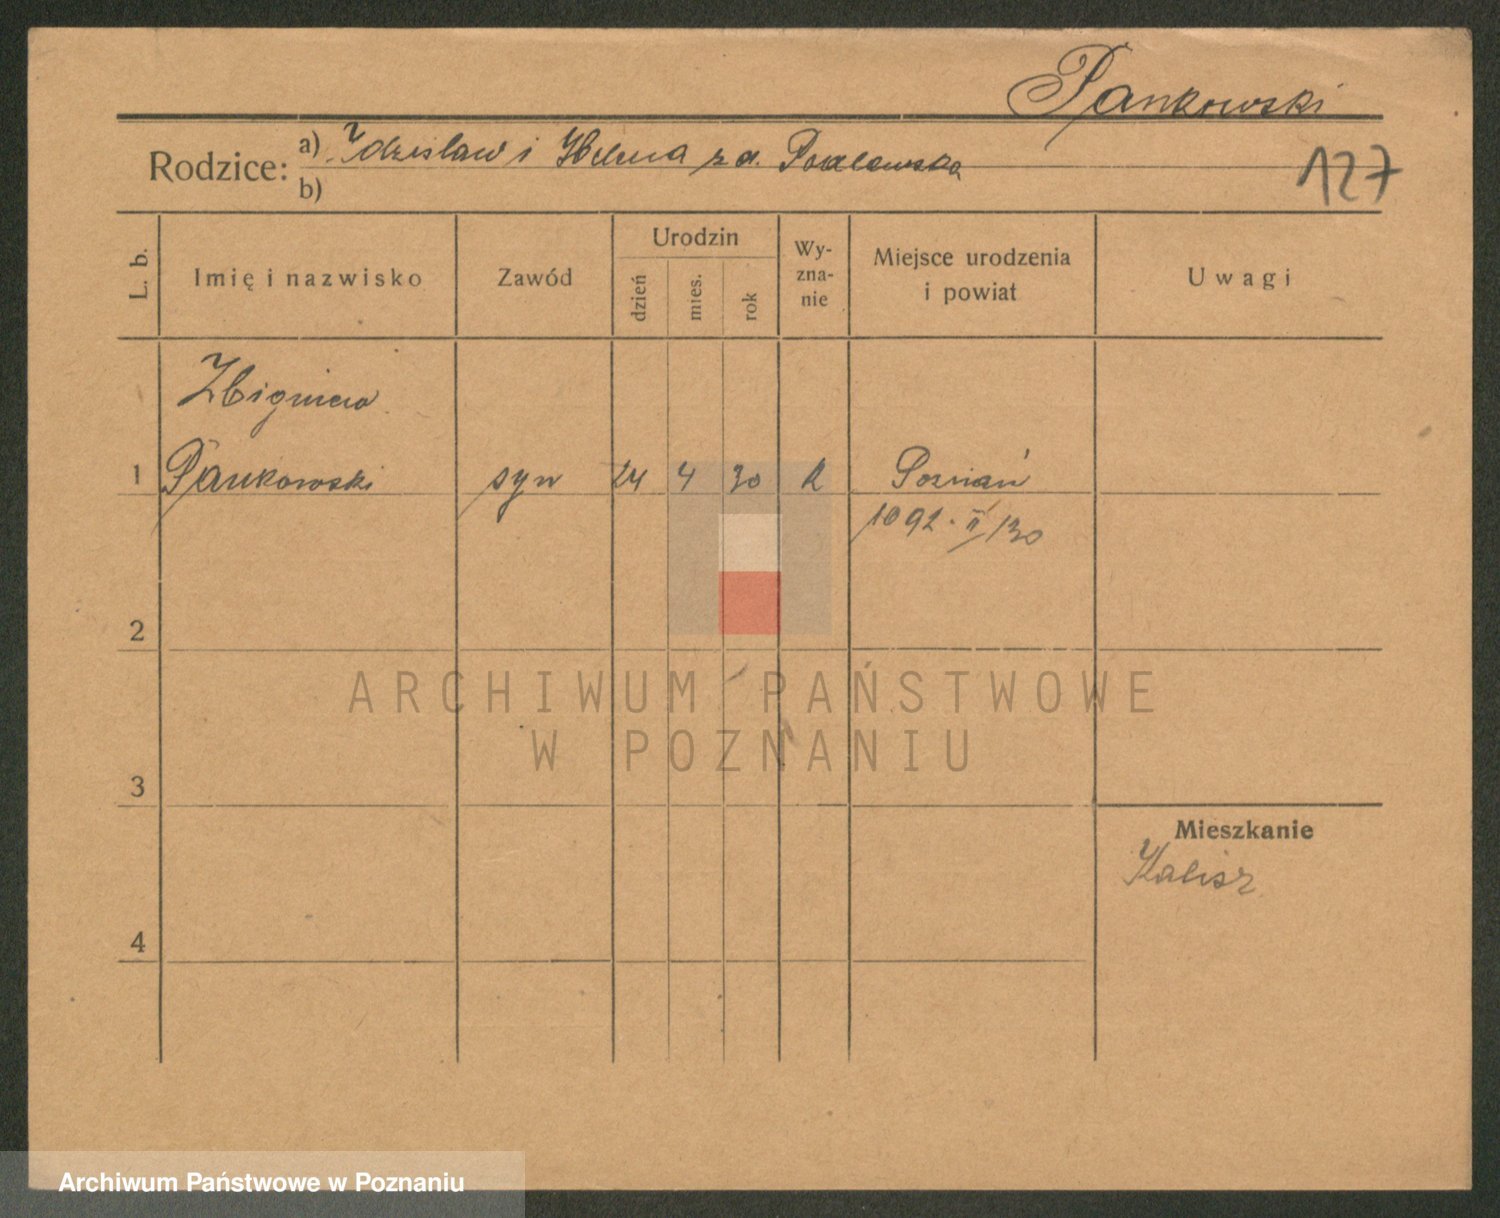 Pankowski
127
Rodzice: a) Zdzisław i Helena z d.
b)
L. b. Imię i nazwisko Zawód Urodzin dzień mies. rok Wy-zna-nie Miejsce urodzenia i powiat Uwagi
Zbigniew
1 Pankowski syn 24 4 30 R Poznań
1092. II/30
2
ARCHIWUM PAŃSTWOWE
W POZNANIU
3
Mieszkanie
Kalisz
4
Archiwum Państwowe w Poznaniu